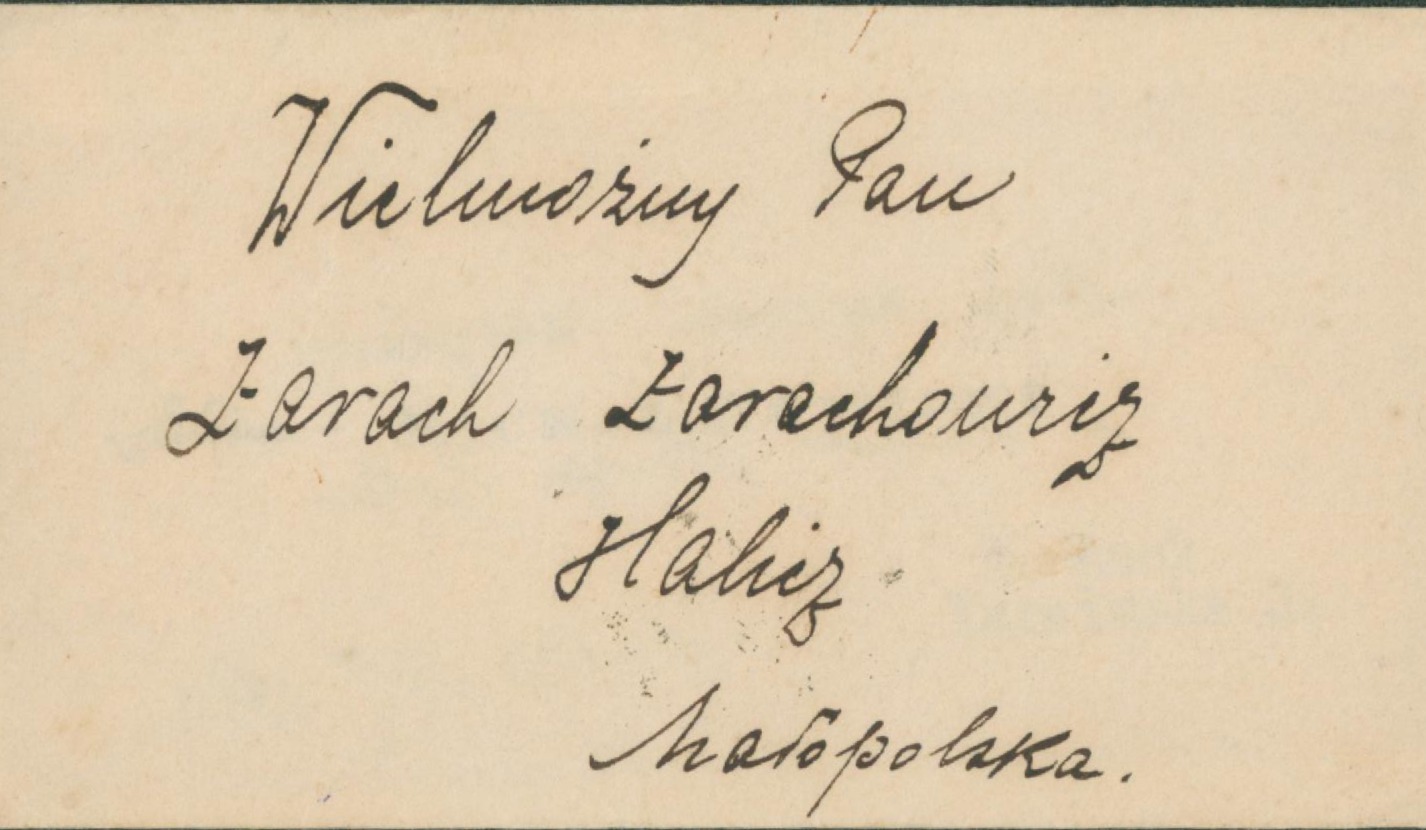 Wielmożny Pan
Zarach Zarachowicz
Halicz
Małopolska.